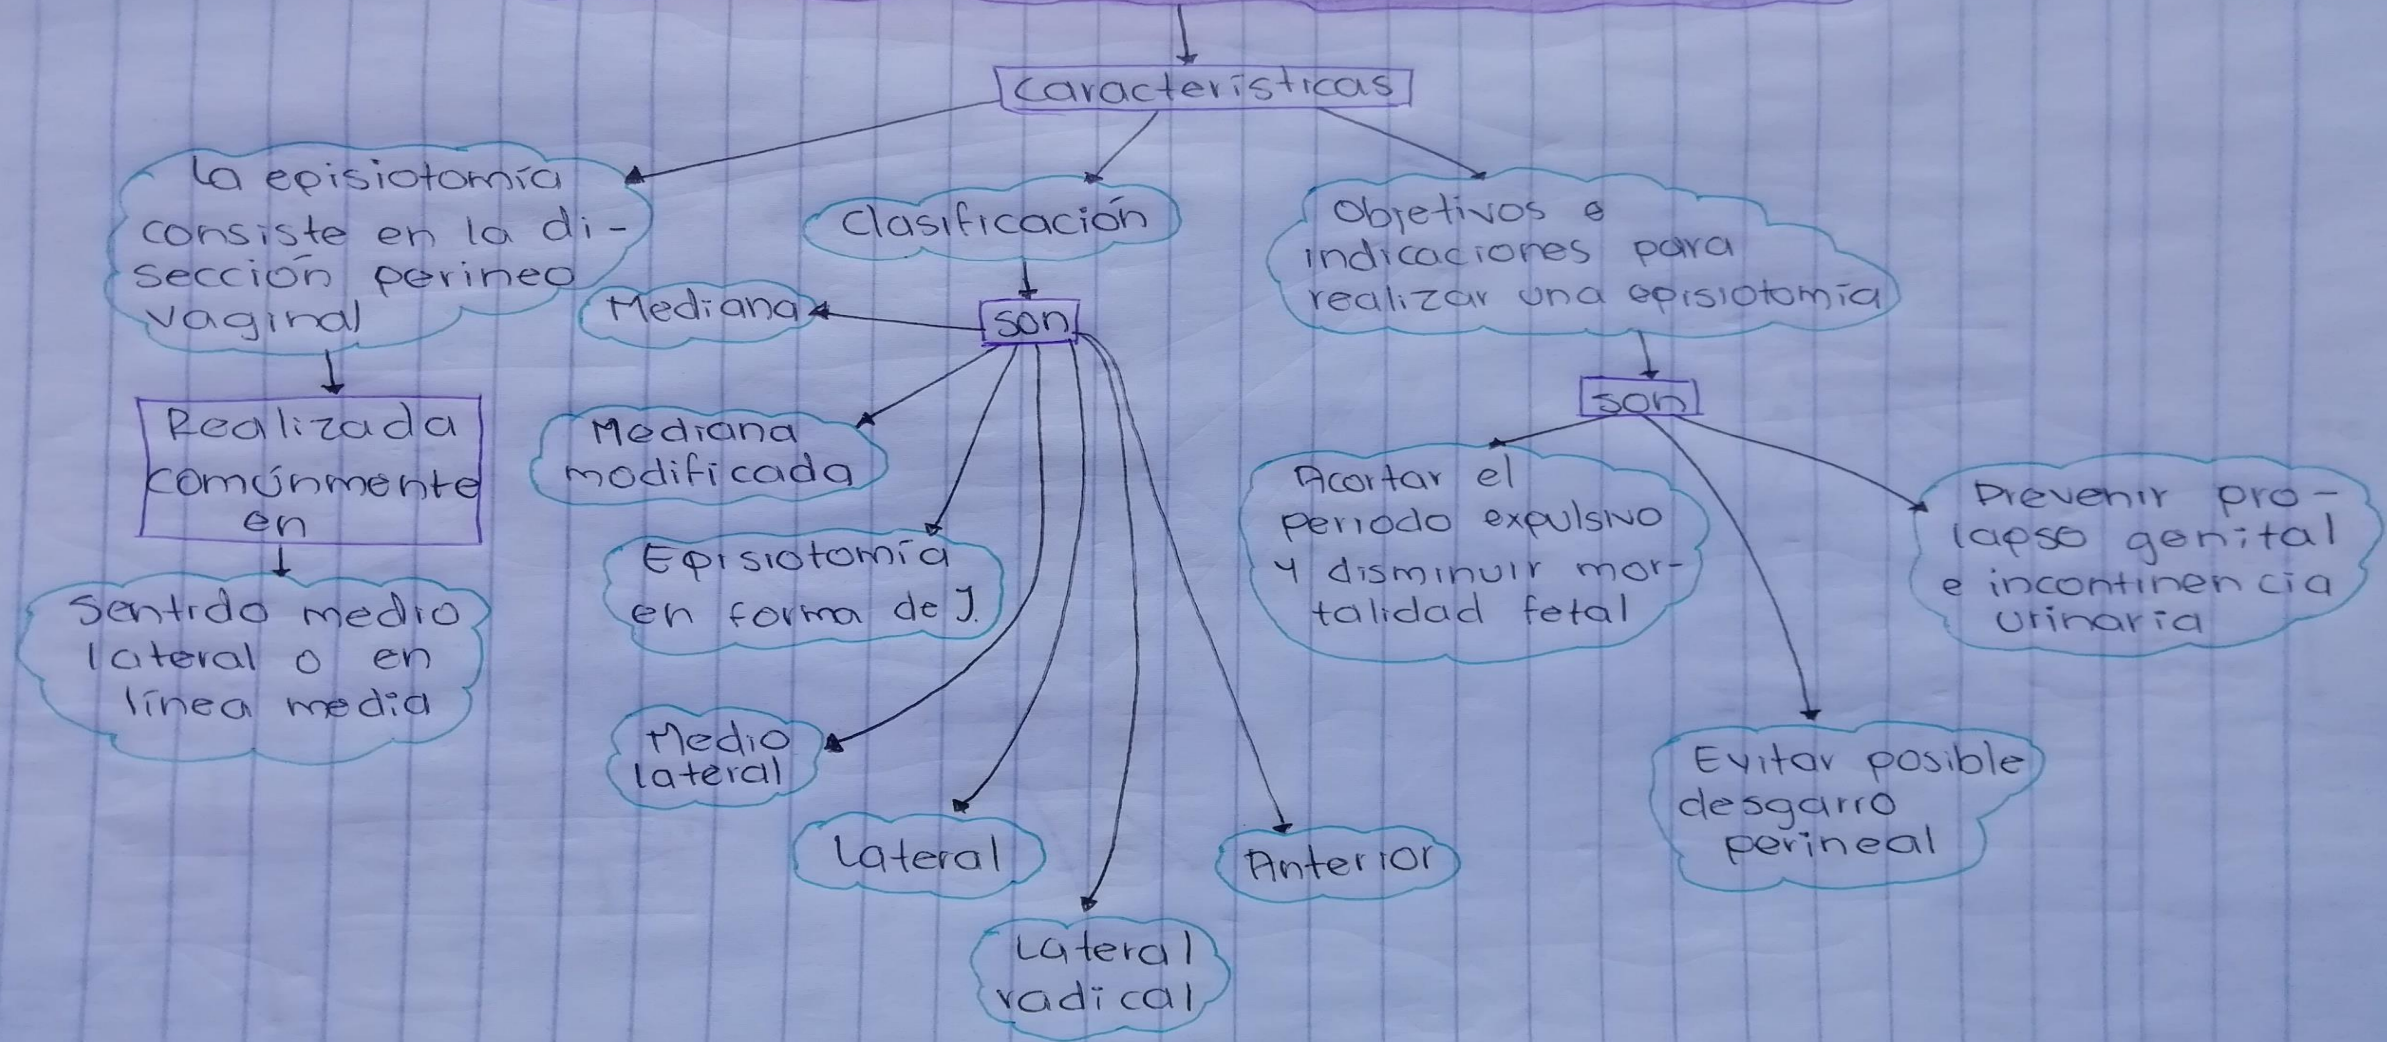 Características
La episiotomía
consiste en la di-
sección perineo
vaginal
Realizada
comúnmente
en
Sentido medio
lateral o en
línea media
Clasificación
son
Mediana
Mediana
modificada
Episiotomía
en forma de J.
Medio
lateral
Lateral
Lateral
radical
Anterior
Objetivos e
indicaciones para
realizar una episiotomía
son
Acortar el
periodo expulsivo
y disminuir mor-
talidad fetal
Evitar posible
desgarro
perineal
Prevenir pro-
lapso genital
e incontinencia
urinaria